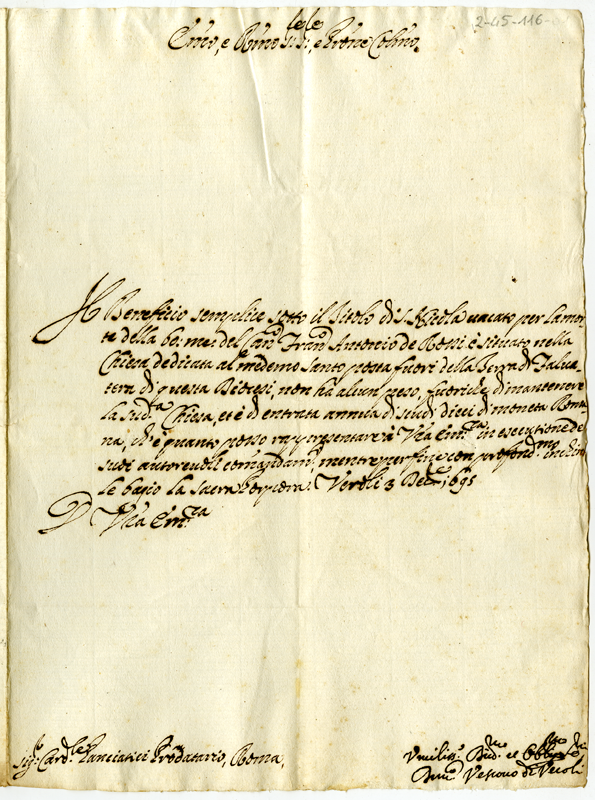 2-45-116-
Em̃o, e Rm̃o Sig.re, e Pr̃one Col.mo
Il Beneficio semplice sotto il Titolo di S. Nicola vacato per la mor-
te della bo: me: del Can.co Fran.co Antonio de Rossi è situato nella
Chiesa dedicata al medemo Santo posta fuori della Terra di Falva-
terra di questa Diocesi, non ha alcun peso, fuorche di mantenere
la sud.ta Chiesa, et è d'entrata annua di scudi dieci di moneta Roma-
na, ch'è quanto posso rappresentare à V̄ra Em.za in esecutione de
suoi autorevoli comandam.ti, mentre per fine con profond.mo inchino
le bagio la sacra Porpora. Veroli 3 Dec.re 1695
D V̄ra Em.za
Sig.r Card.le Panciatici Prodatario, Roma.
Umiliss.o Div.mo et Obblig.mo
Vescovo di Veroli